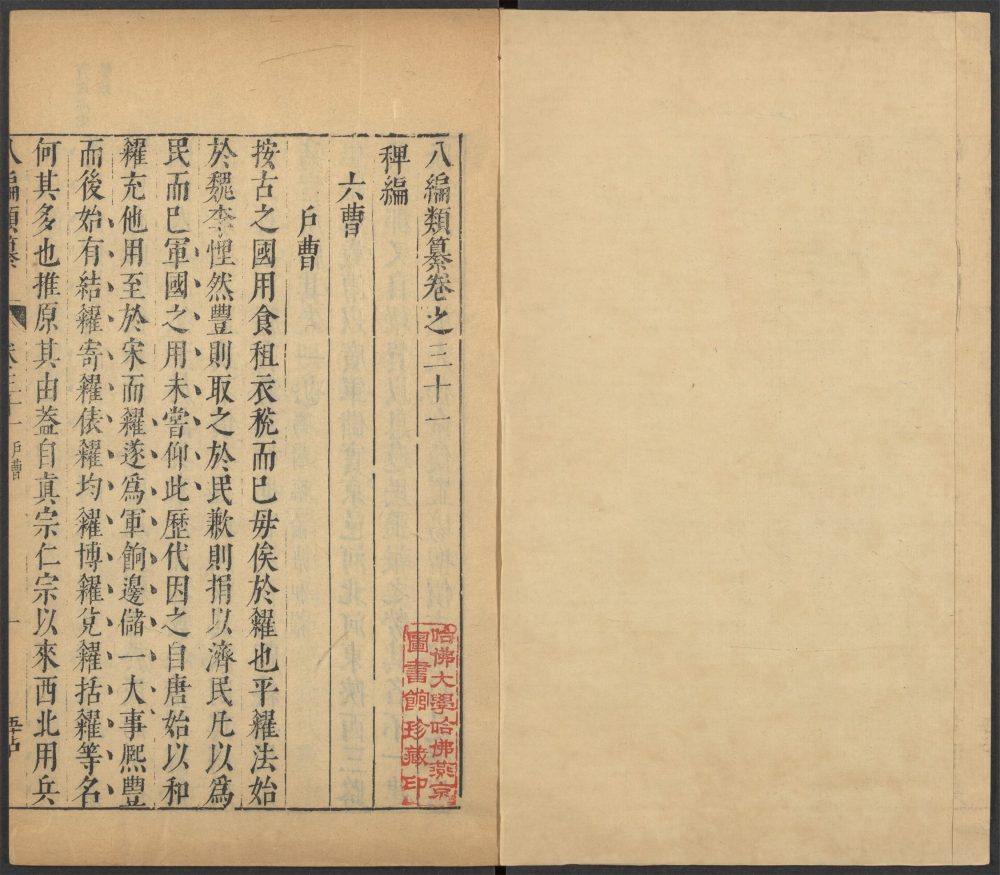 八編類纂卷之三十一
稗編
六曹
戶曹
按古之國用食租衣稅而已毋俟於糴也平糴法始
於魏李悝然豐則取之於民歉則捐以濟民凡以爲
民而已軍國之用未嘗仰此歷代因之自唐始以和
糴充他用至於宋而糴遂爲軍餉邊儲一大事熈豐
而後始有結糴寄糴俵糴均糴博糴兌糴括糴等名
何其多也推原其由葢自真宗仁宗以來西北用兵
八編類纂
戶曹
一
哈佛大學哈佛燕京
圖書館珍藏印